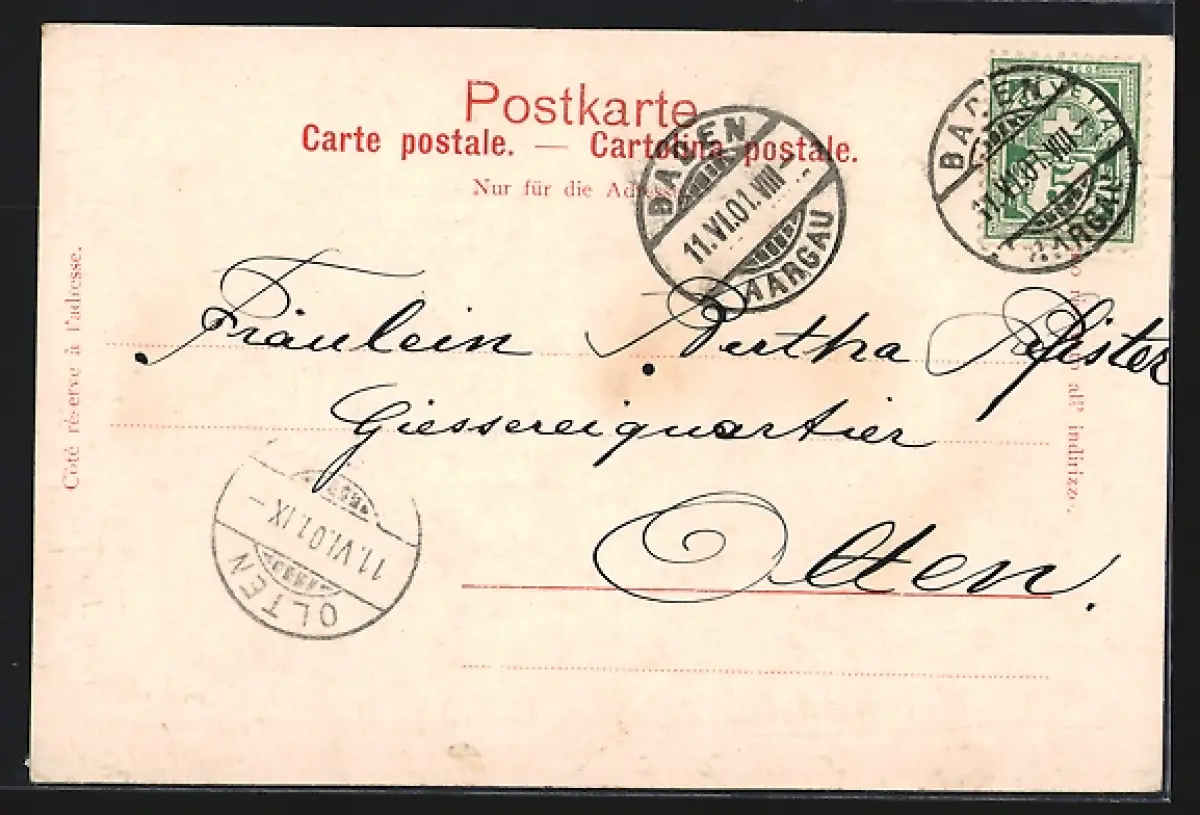 Postkarte
Carte postale. — Cartolina postale.
Nur für die Adresse
BADEN
11.VI.01.VIII–
AARGAU
HELVETIA
5
BADEN
11.VI.01.VIII–
AARGAU
Côté réservé à l'adresse.
all' indirizzo.
Fräulein Bertha Pfister
Giessereiquartier
Olten.
11.VI.01.IX–
OLTEN